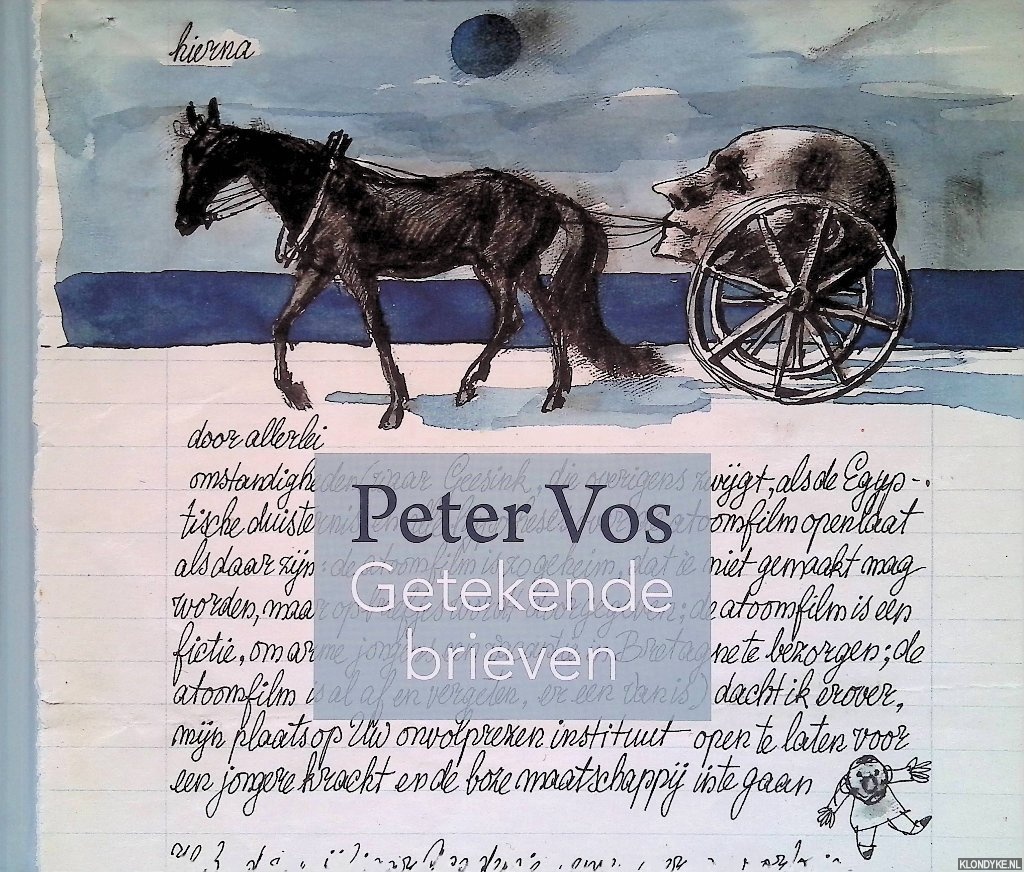 hierna
door allerlei
omstandigheden (waar Geesink, die overigens zwijgt, als de Egyp-
tische duisternis atoomfilm openlaat
als daar zijn: de atoomfilm is zo geheim, dat ie niet gemaakt mag
worden, maar op briefjes wordt doorgegeven; de atoomfilm is een
fictie, om arme jongens een vacantie in Bretagne te bezorgen; de
atoomfilm is al af en vergeten, er een van is) dacht ik erover,
mijn plaats op Uw onvolprezen instituut open te laten voor
een jongere kracht en de boze maatschappij in te gaan
Peter Vos
Getekende
brieven
KLONDYKE.NL